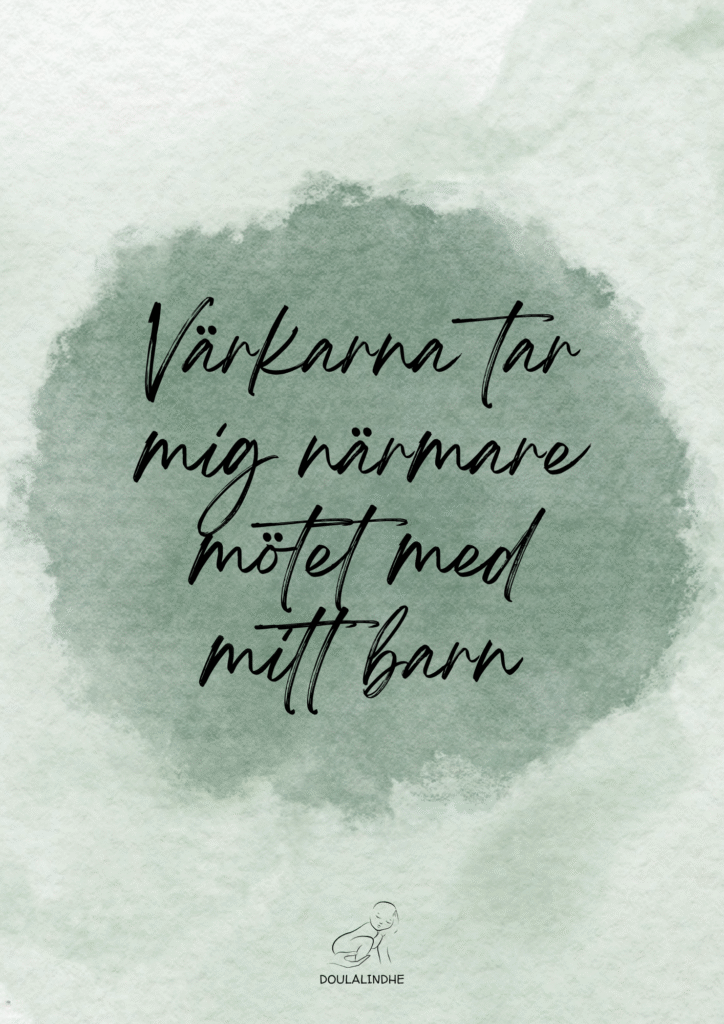 Värkarna tar
mig närmare
mötet med
mitt barn
DOULALINDHE